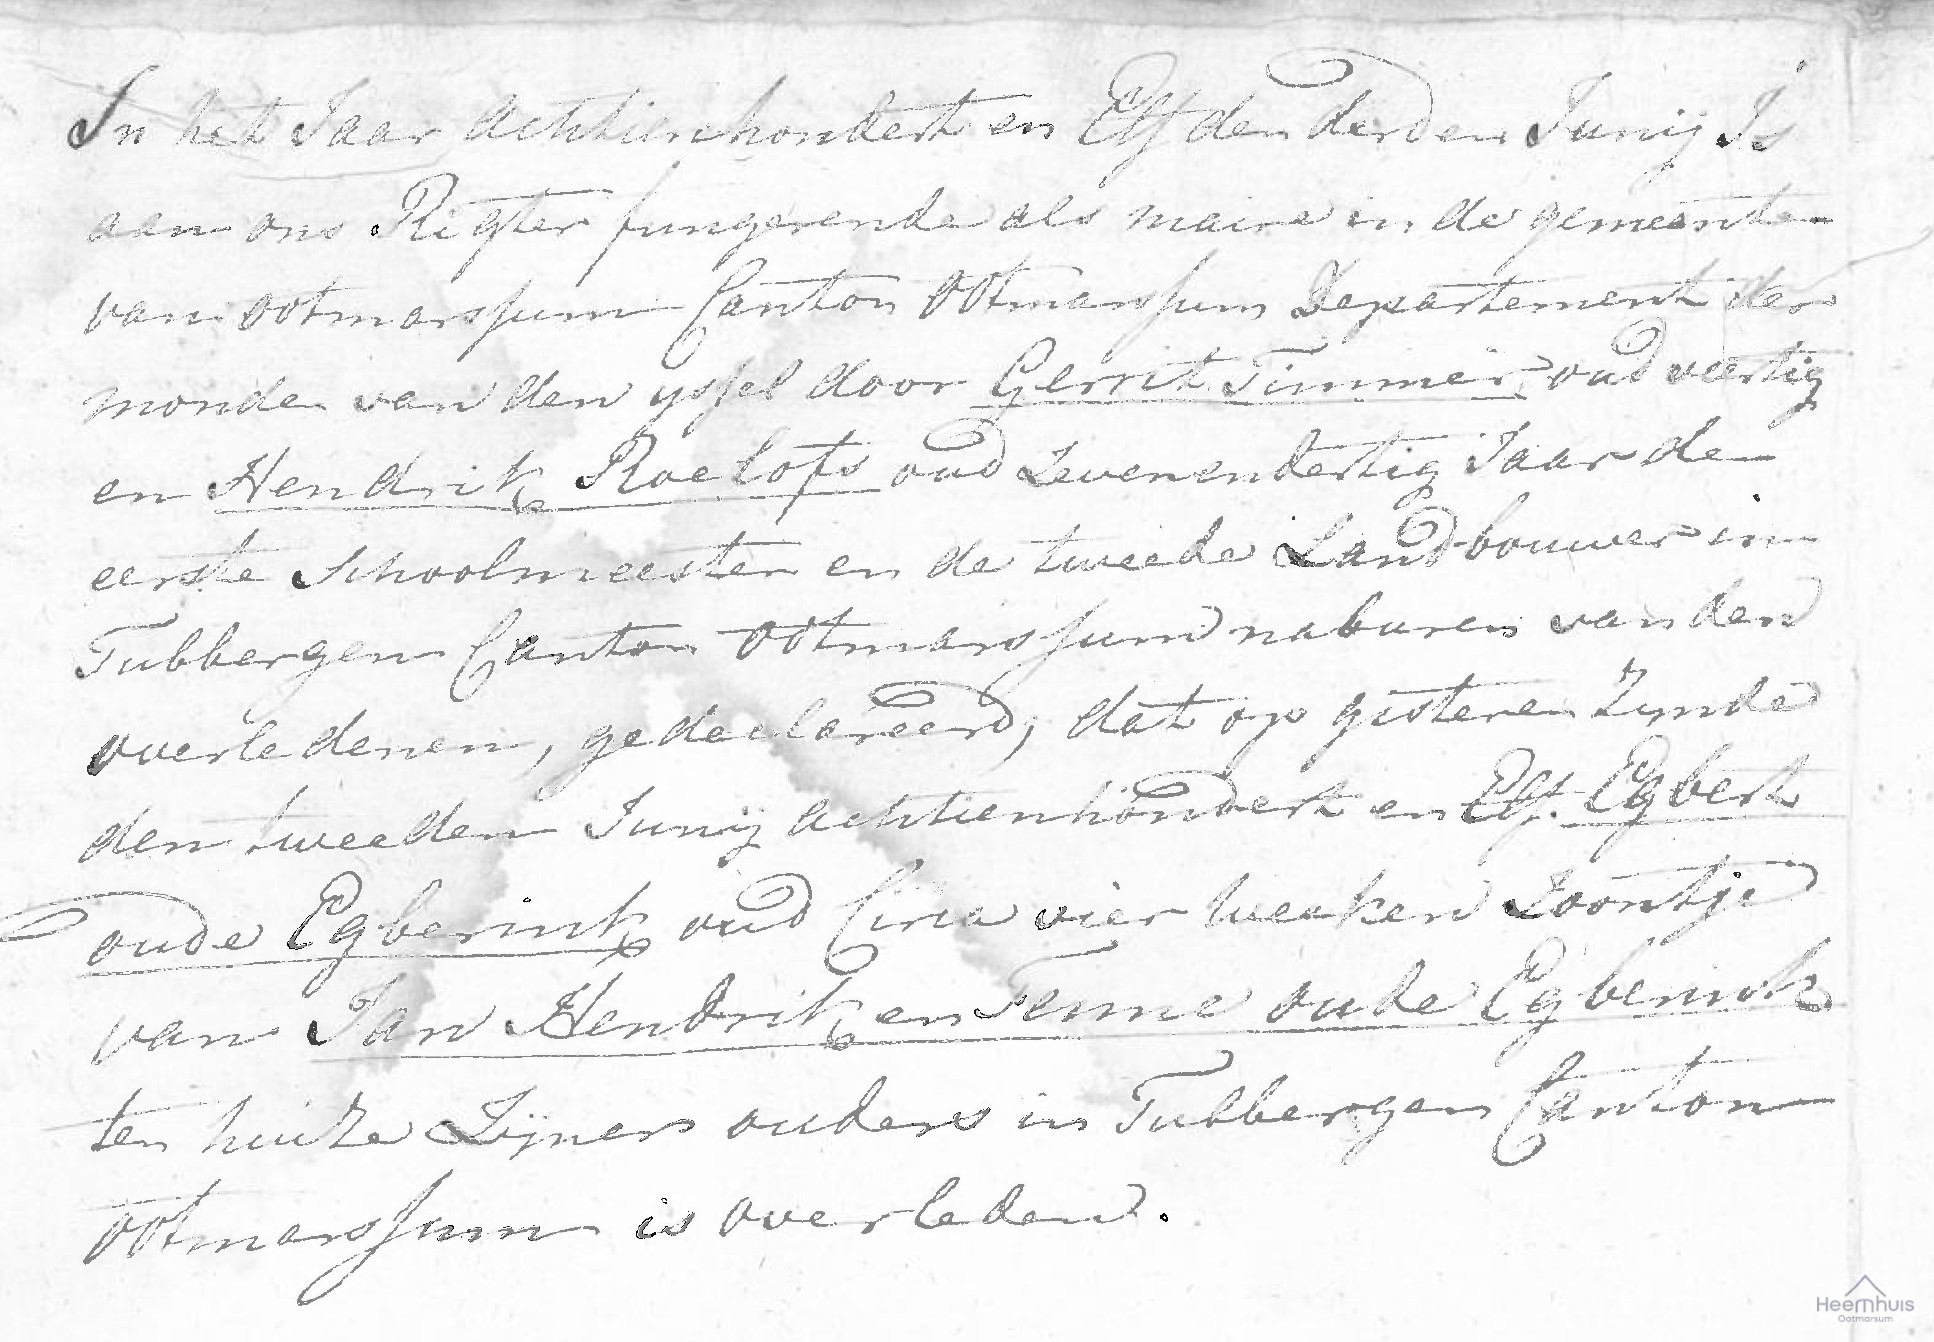 In het Jaar Achttienhondert en Elf den derden Junij Is
aan ons Rigter fungerende als maire in de gemeente
van ootmarssum Canton Ootmarssum Departement der
monden van den yssel door Gerrit Timmer oud veertig
en Hendrik Roelofs oud Zevenendertig Jaar de
eerste Schoolmeester en de tweede Landbouwer in
Tubbergen Canton Ootmarssum naburen van den
overledenen, gedeclareerd, dat op gisteren Zynde
den tweeden Junij Achttienhondert en Elf. Egbert
oude Egberink oud Circa vier weeken Zoontje
van Jan Hendrik en Fenne oude Egberink
ten huize Zijner ouders in Tubbergen Canton
Ootmarssum is overleden.
Heemhuis
Ootmarsum